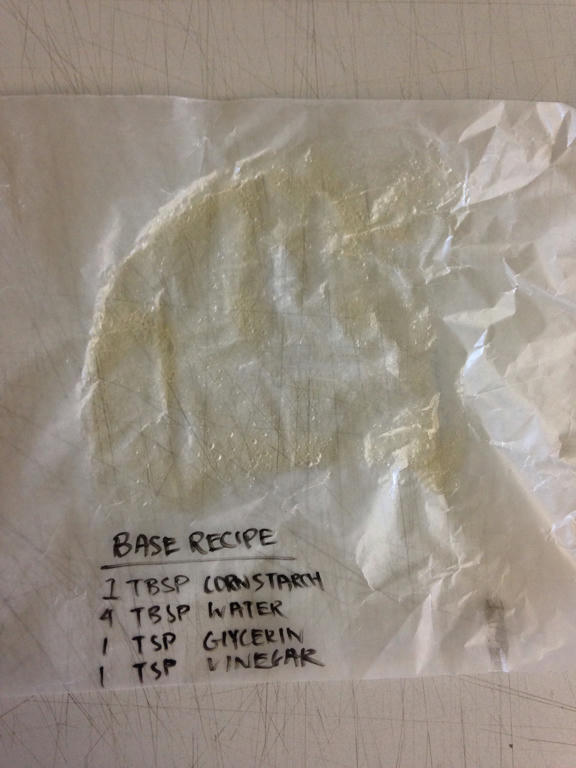 BASE RECIPE
1 TBSP CORNSTARCH
4 TBSP WATER
1 TSP GLYCERIN
1 TSP VINEGAR